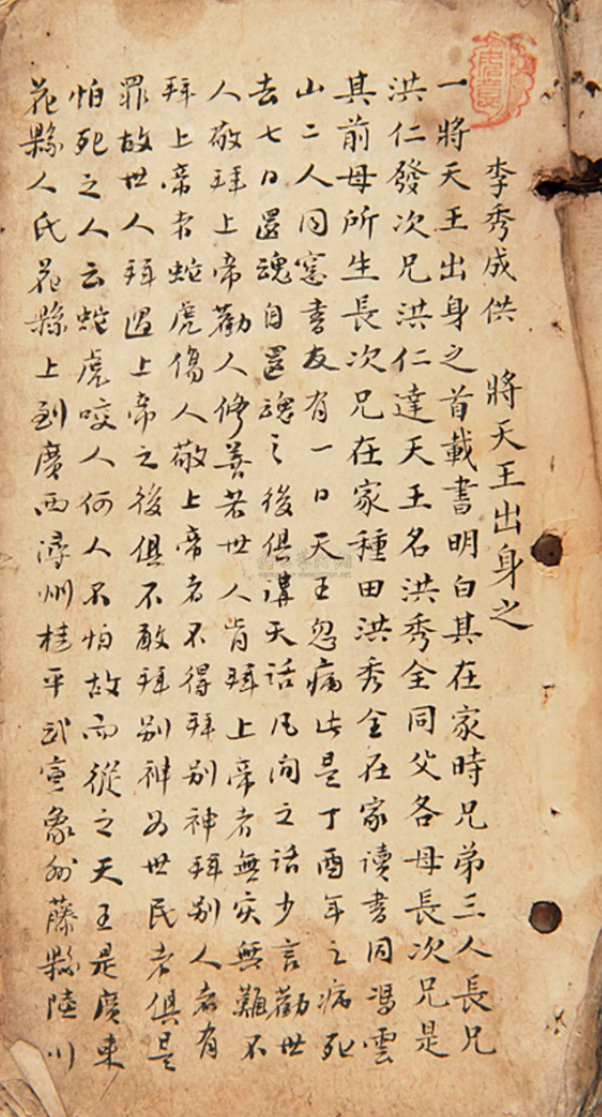 李秀成供　將天王出身之
一將天王出身之首載書明白其在家時兄弟三人長兄
洪仁發次兄洪仁達天王名洪秀全同父各母長次兄是
其前母所生長次兄在家種田洪秀全在家讀書同馮雲
山二人同窓書友有一日天王忽病此是丁酉年之病死
去七日還魂自還魂之後俱講天話凡间之話少言勸世
人敬拜上帝勸人修善若世人肯拜上帝者無災無難不
拜上帝者蛇虎傷人敬上帝者不得拜別神拜別人者有
罪故世人拜過上帝之後俱不敢拜別神為世民者俱是
怕死之人云蛇虎咬人何人不怕故而從之天王是廣東
花縣人氏花縣上到廣西潯州桂平武宣象州藤縣陸川